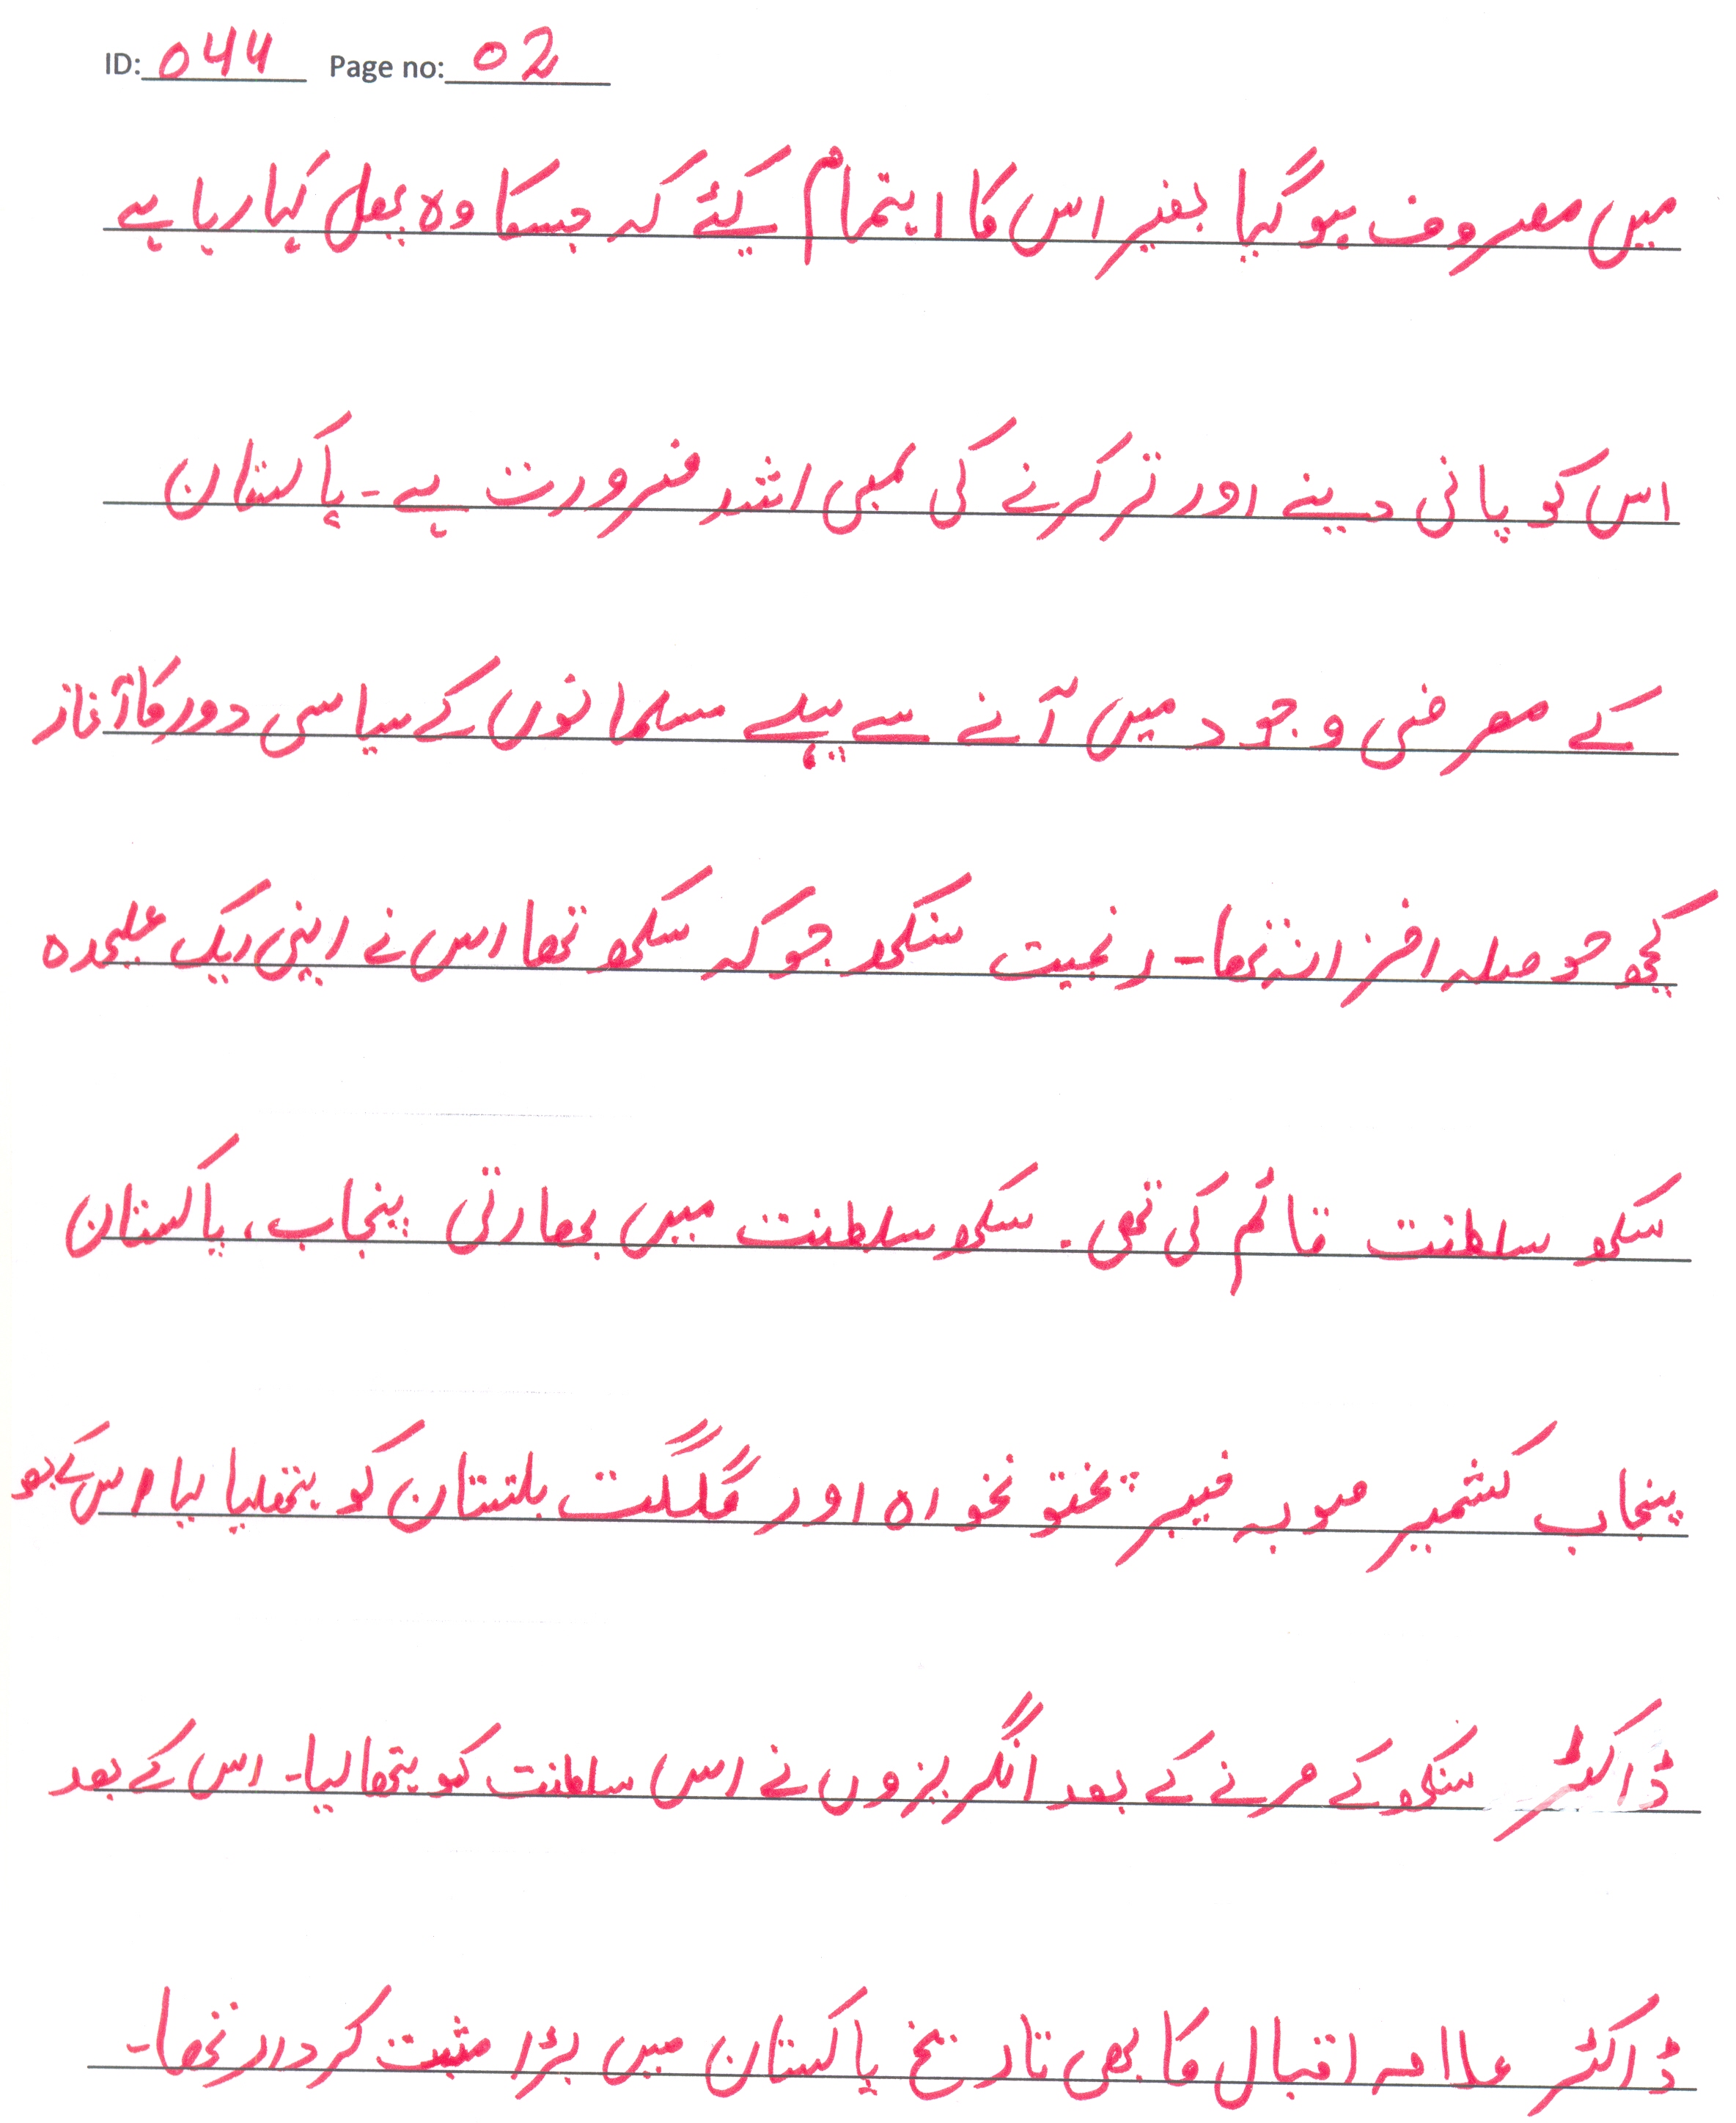 ID: 044 Page no: 02
میں مصروف ہو گیا بغیر اس کا اہتمام کیئے کہ جسکا وہ پھل کھا رہا ہے
اس کو پانی دینے اور تر کرنے کی بھی اشد ضرورت ہے۔ پاکستان
کے معرضی وجود میں آنے سے پہلے مسلمانوں کے سیاسی دور کا آغاز
کچھ حوصلہ افزا نہ تھا۔ رنجیت سنگھ جو کہ سکھ تھا اس نے اپنی ایک علیحدہ
سکھ سلطنت قائم کی تھی۔ سکھ سلطنت میں بھارتی پنجاب، پاکستان
پنجاب کشمیر صوبہ خیبر پختو نخواہ اور گلگت بلتستان کو ہتھلیا لیا اس کے بعد
ڈاکٹر سنگھ کے مرنے کے بعد انگریزوں نے اس سلطنت کو ہتھا لیا۔ اس کے بعد
ڈاکٹر علامہ اقبال کا بھی تاریخ پاکستان میں بڑا مثبت کردار تھا۔